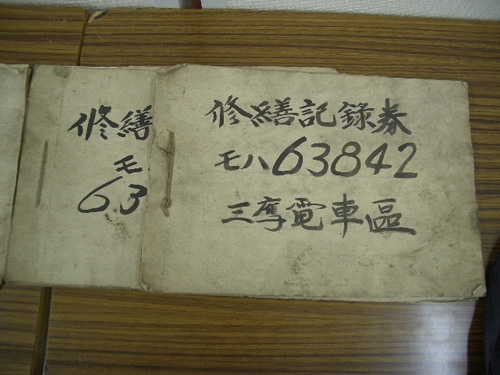 修繕
モ
63
修繕記録券
モハ63842
三鷹電車區